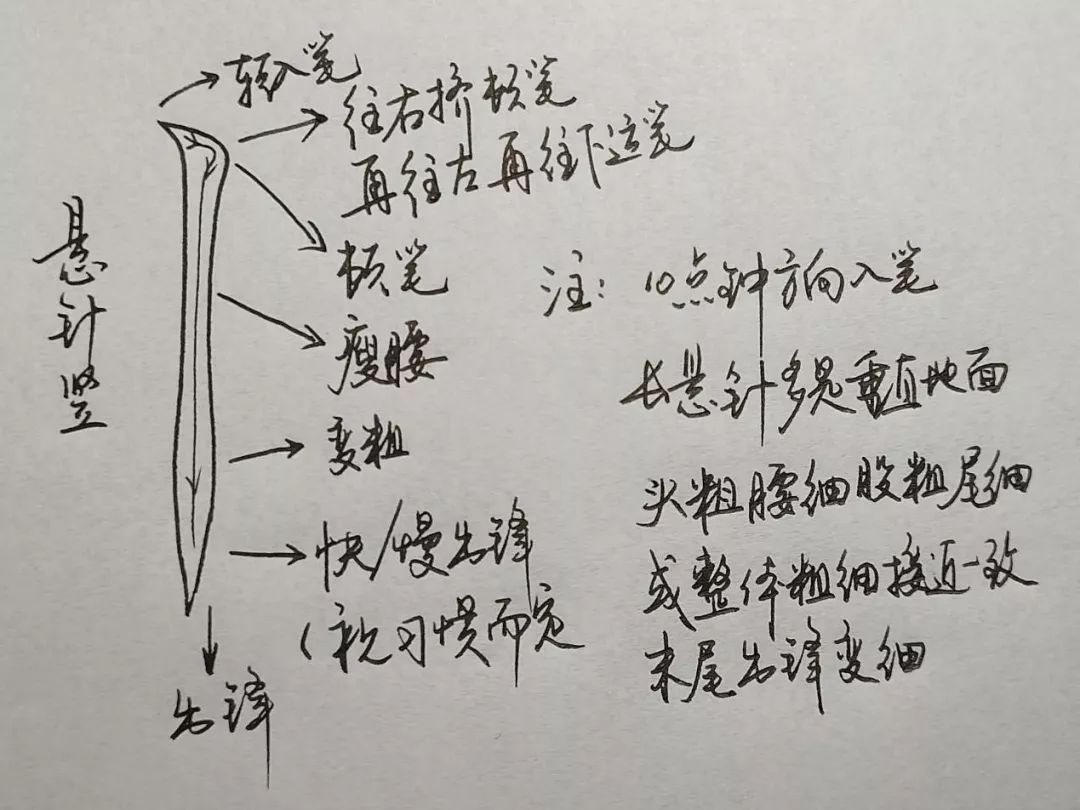 悬针竖
轻入笔
往右挤顿笔
再往左再往下运笔
顿笔
瘦腰
变粗
快/慢出锋
(视习惯而定
出锋
注:10点钟方向入笔
长悬针多是垂直地面
头粗腰细股粗尾细
或整体粗细接近一致
末尾出锋变细